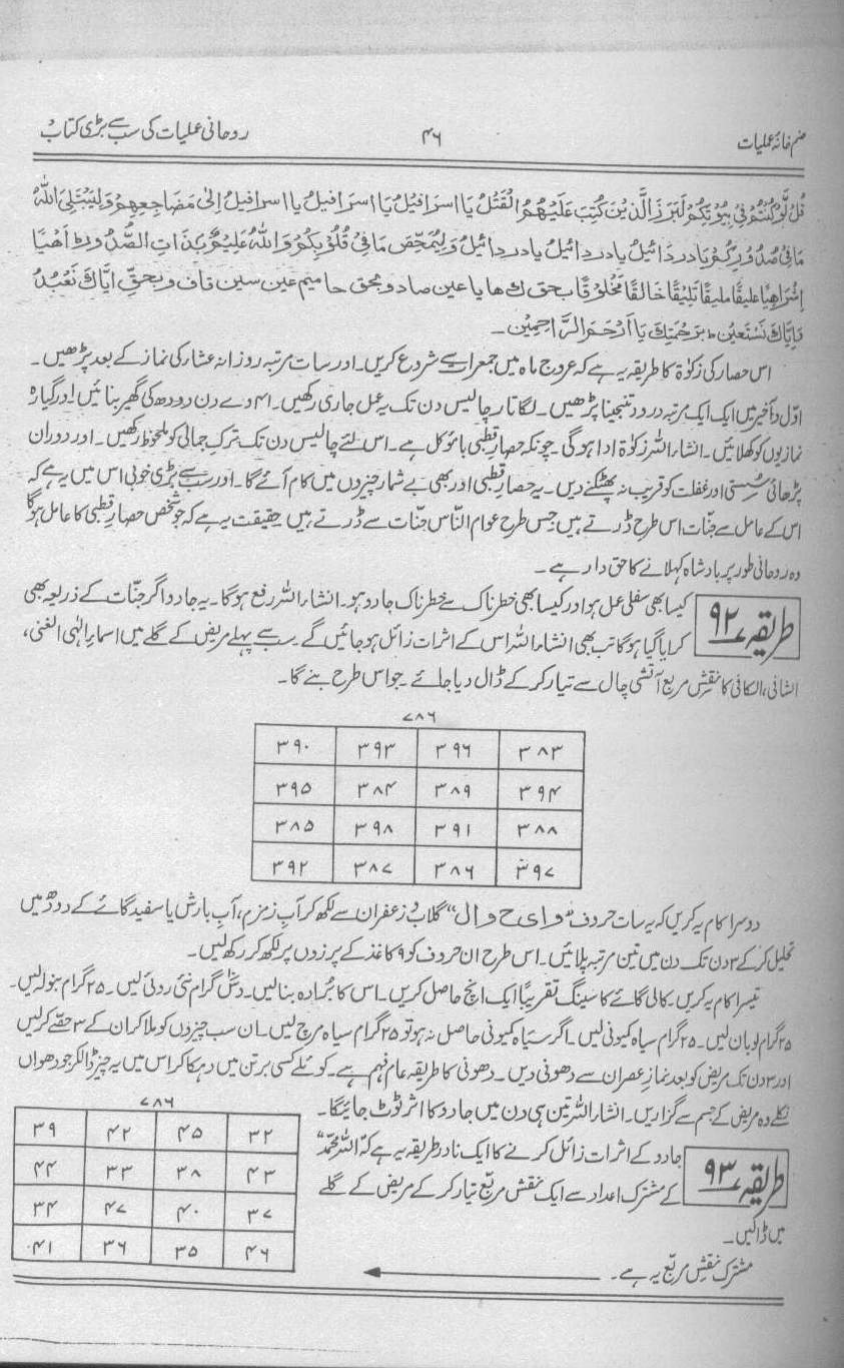 صنم خانۂ عملیات ۴۶ روحانی عملیات کی سب سے بڑی کتاب
قُلْ لَّوْ كُنْتُمْ فِیْ بُیُوْتِكُمْ لَبَرَزَ الَّذِیْنَ كُتِبَ عَلَیْهِمُ الْقَتْلُ یَا اسرَافیلُ یَا اسرَافیلُ یا اسرافیلُ اِلٰی مَضَاجِعِهِمْ وَلِیَبْتَلِیَ اللّٰهُ
مَا فِیْ صُدُوْرِكُمْ یَادردَائیلُ یادر دائیلُ یادر دائیلُ وَلِیُمَحِّصَ مَا فِیْ قُلُوْبِكُمْ وَاللّٰهُ عَلِیْمٌۢ بِذَاتِ الصُّدُوْرِ اَهْیًا
اِشْرَاهِیًا علیقًا ملیقًا تلیقًا خَالقًا مَخْلُوْقًا بحق ك ها یا عین صاد و بحق حا میم عین سین قاف و بحقِّ اِیَّاكَ نَعْبُدُ
وَاِیَّاكَ نَسْتَعِیْن ط بِرَحْمَتِكَ یَا اَرْحَمَ الرَّاحِمِیْن۔
اس حصار کی زکوٰۃ کا طریقہ یہ ہے کہ عروج ماہ میں جمعرات سے شروع کریں۔ اور سات مرتبہ روزانہ عشار کی نماز کے بعد پڑھیں۔
اوّل و آخیر میں ایک ایک مرتبہ درود تنجینا پڑھیں۔ لگاتار چالیس دن تک یہ عمل جاری رکھیں۔ ۴۱ وے دن دودھ کی کھیر بنائیں اور گیارہ
نمازیوں کو کھلائیں۔ انشاء اللہ زکوٰۃ ادا ہوگی۔ چونکہ حصارِ قطبی بامؤکل ہے۔ اس لئے چالیس دن تک ترک جمالی کو ملحوظ رکھیں۔ اور دوران
پڑھائی سستی اور غفلت کو قریب نہ پھٹکنے دیں۔ یہ حصارِ قطبی اور بھی بے شمار چیزوں میں کام آئے گا۔ اور سب سے بڑی خوبی اس میں یہ ہے کہ
اس کے عامل سے جنّات اس طرح ڈرتے ہیں جس طرح عوام النّاس جنّات سے ڈرتے ہیں حقیقت یہ ہے کہ جو شخص حصارِ قطبی کا عامل ہوگا
وہ روحانی طور پر بادشاہ کہلانے کا حق دار ہے۔
طریقہ ۹۲ کیسا بھی سفلی عمل ہو اور کیسا بھی خطرناک سے خطرناک جادو ہو۔ انشاء اللہ رفع ہوگا۔ یہ جادو اگر جنّات کے ذریعہ بھی
کرایا گیا ہوگا تب بھی انشاء اللہ اس کے اثرات زائل ہو جائیں گے۔ سب سے پہلے مریض کے گلے میں اسماء الٰہی الغنی،
الشافی، الکافی کا نقش مربع آتشی چال سے تیار کرکے ڈال دیا جائے۔ جو اس طرح بنے گا۔
۷۸۶
۳۸۳ ۳۹۶ ۳۹۳ ۳۹۰
۳۹۴ ۳۸۹ ۳۸۴ ۳۹۵
۳۸۸ ۳۹۱ ۳۹۸ ۳۸۵
۳۹۷ ۳۸۶ ۳۸۷ ۳۹۲
دوسرا کام یہ کریں کہ یہ سات حروف "و ا ی ح و ا ل" گلاب و زعفران سے لکھ کر آبِ زمزم، آبِ بارش یا سفید گائے کے دودھ میں
تحلیل کرکے ۳ دن تک دن میں تین مرتبہ پلائیں۔ اس طرح ان حروف کو ۹ کاغذ کے پرزوں پر لکھ کر رکھ لیں۔
تیسرا کام یہ کریں۔ کالی گائے کا سینگ تقریباً ایک انچ حاصل کریں۔ اس کا بُرادہ بنالیں۔ دس گرام نئی روئی لیں۔ ۲۵ گرام بنولہ لیں۔
۲۵ گرام لوبان لیں۔ ۲۵ گرام سیاہ کمیونی لیں۔ اگر سیاہ کمیونی حاصل نہ ہو تو ۲۵ گرام سیاہ مرچ لیں۔ ان سب چیزوں کو ملا کر ان کے ۳ حصّے کرلیں
اور ۳ دن تک مریض کو بعد نمازِ عصر ان سے دھونی دیں۔ دھونی کا طریقہ عام فہم ہے۔ کوئلے کسی برتن میں دہکا کر اس میں یہ چیز ڈال کر جو دھواں
نکلے وہ مریض کے جسم سے گزاریں۔ انشاء اللہ تین ہی دن میں جادو کا اثر ٹوٹ جائیگا۔
طریقہ ۹۳ جادو کے اثرات زائل کرنے کا ایک نادر طریقہ یہ ہے کہ "اللہ محمدؐ"
کے مشترک اعداد سے ایک نقش مربّع تیار کرکے مریض کے گلے
میں ڈالیں۔
مشترک نقشِ مربّع یہ ہے۔
۷۸۶
۳۲ ۴۵ ۴۲ ۳۹
۴۳ ۳۸ ۳۳ ۴۴
۳۷ ۴۰ ۴۷ ۳۴
۴۶ ۳۵ ۳۶ ۴۱